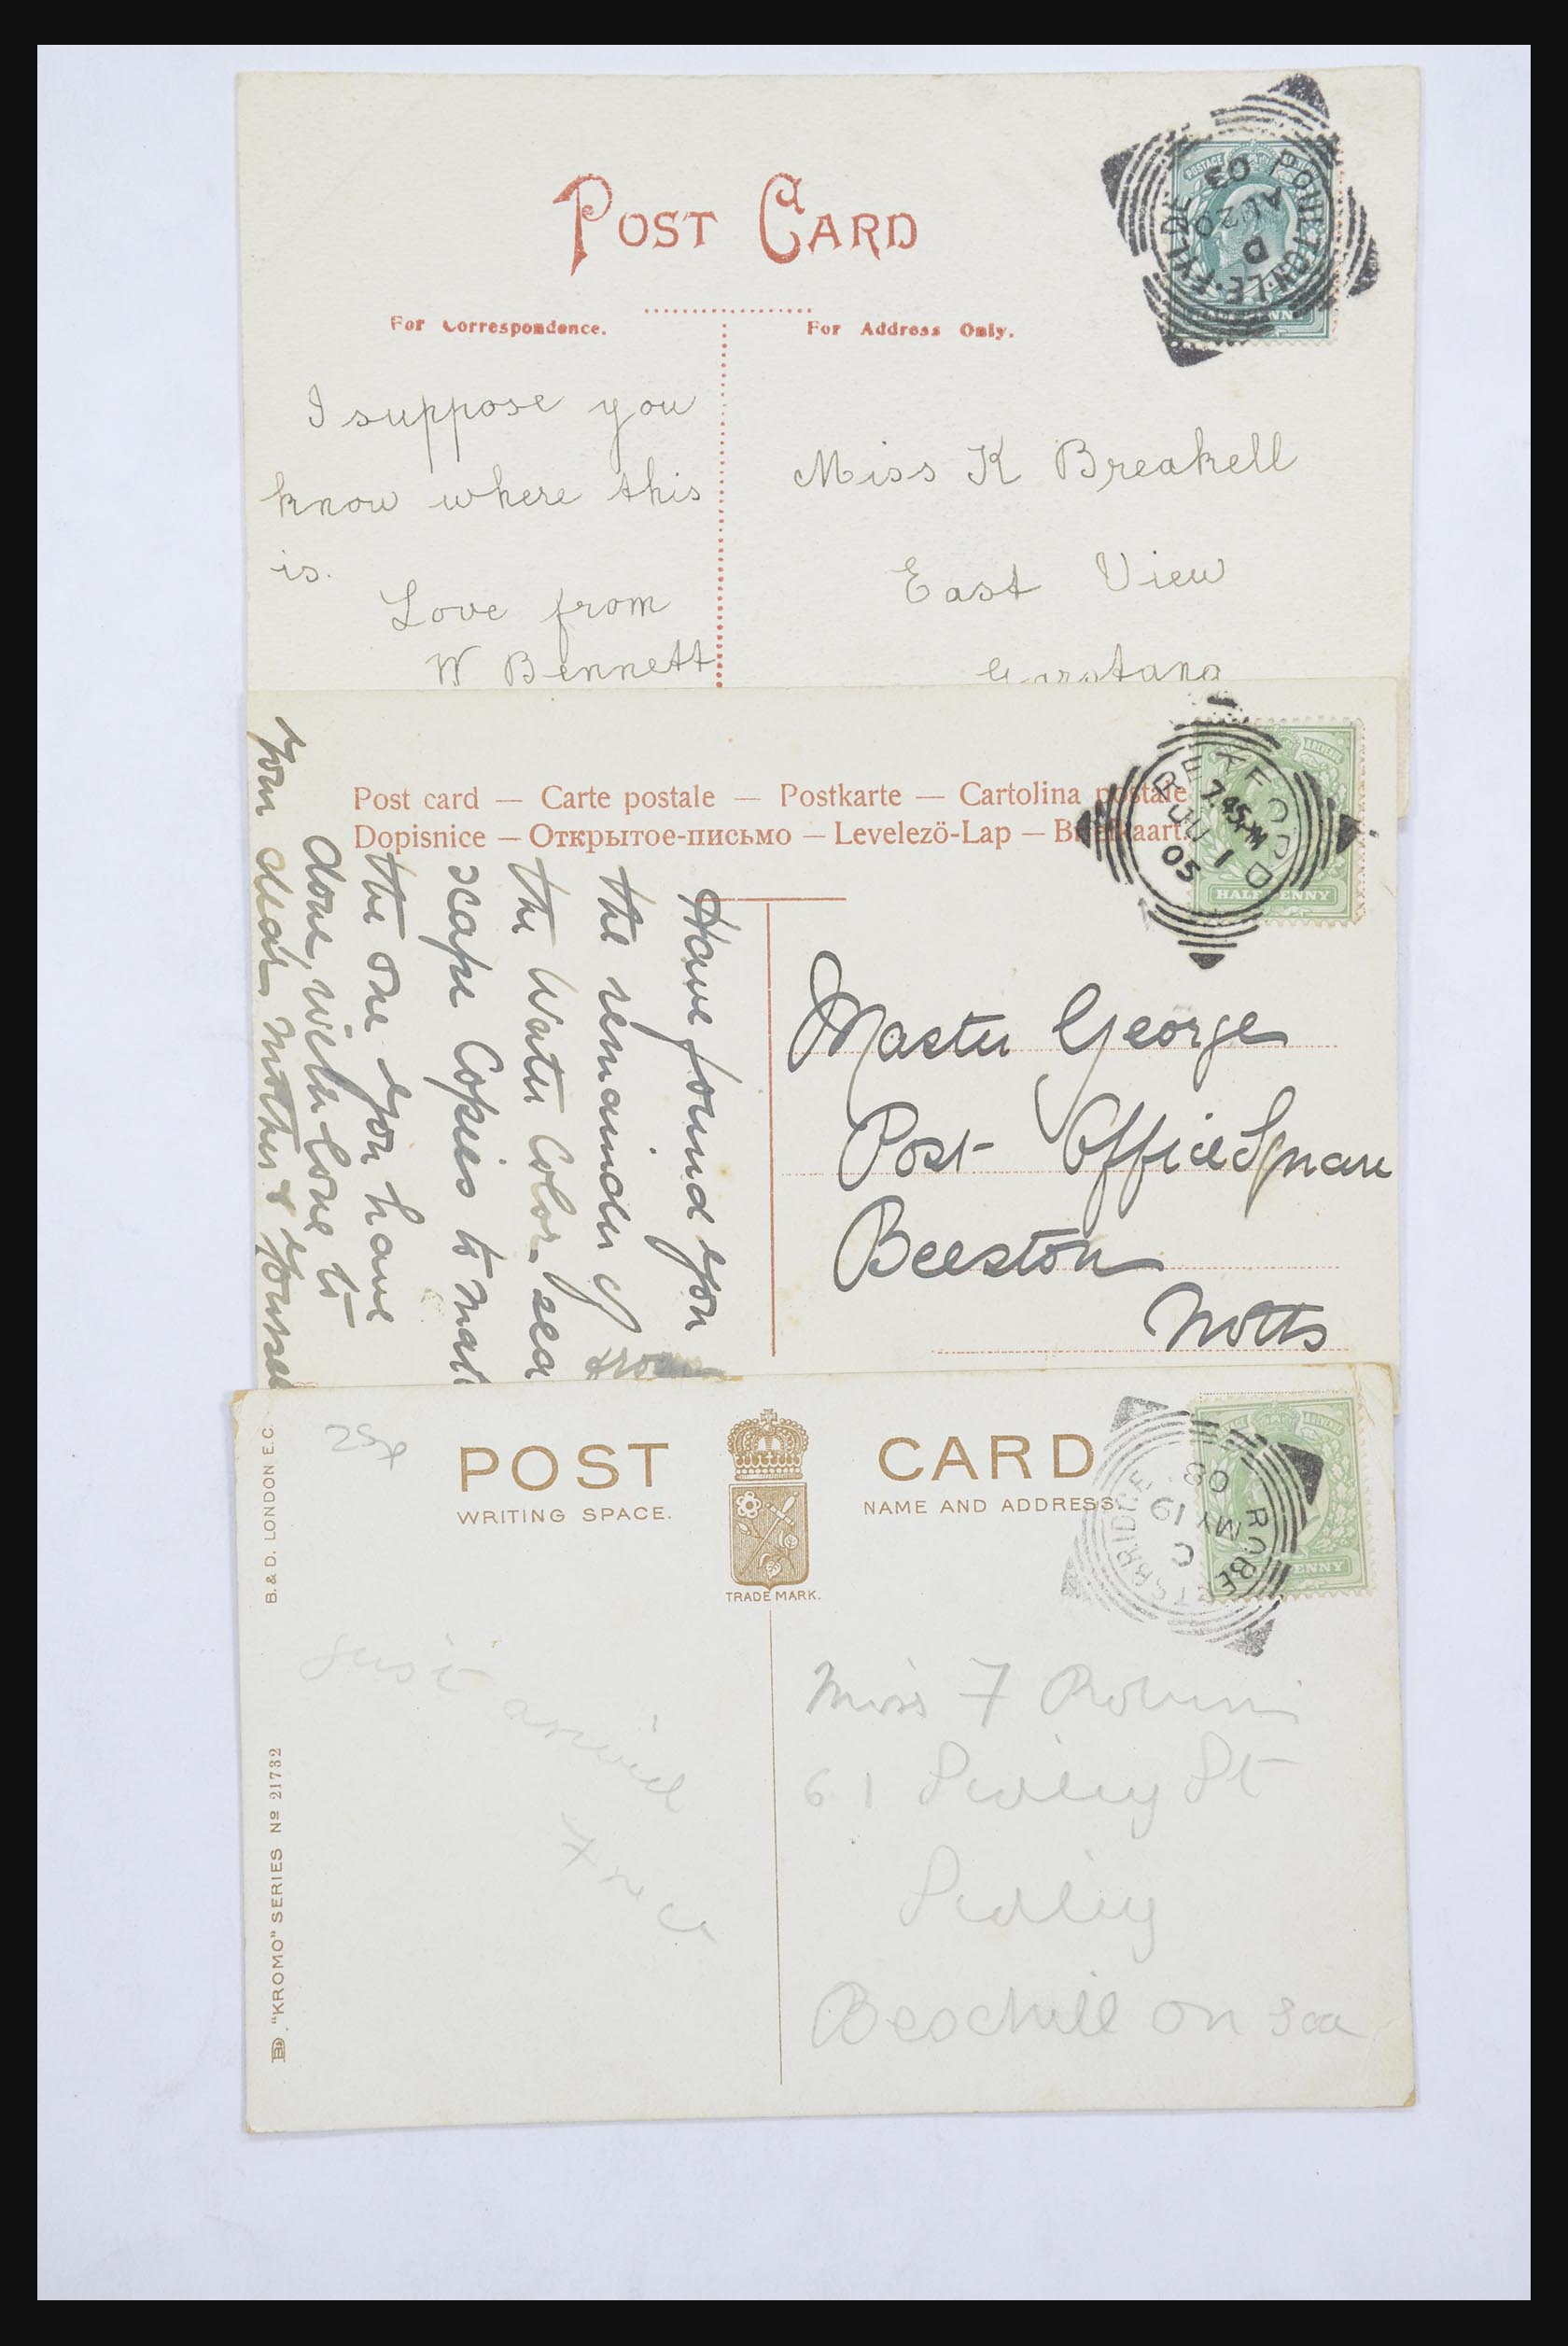 POST CARD
For Correspondence.
For Address Only.
POSTAGE
POULTON.LE.FYLDE
D
AU 20
03
I suppose you
know where this
is.
Love from
W Bennett
Miss K Breakell
East View
Garstang
Post card — Carte postale — Postkarte — Cartolina postale
Dopisnice — Открытое-письмо — Levelezö-Lap — Briefkaart.
REXFORD
7.45PM
JU 1
05
HALFPENNY
Have found you
the remainder of
the Water Color-sea
scape Copies to
the one you have
done, with love to
your dear mother &
Master George
Post Office Square
Beeston
Notts
25x
POST CARD
WRITING SPACE.
NAME AND ADDRESS.
TRADE MARK.
ROBERTSBRIDGE
C
MY 19
08
B. & D. LONDON E.C.
"KROMO" SERIES Nº 21732
Just arrived
Miss F
61 Sidley St
Sidley
Bexhill on Sea